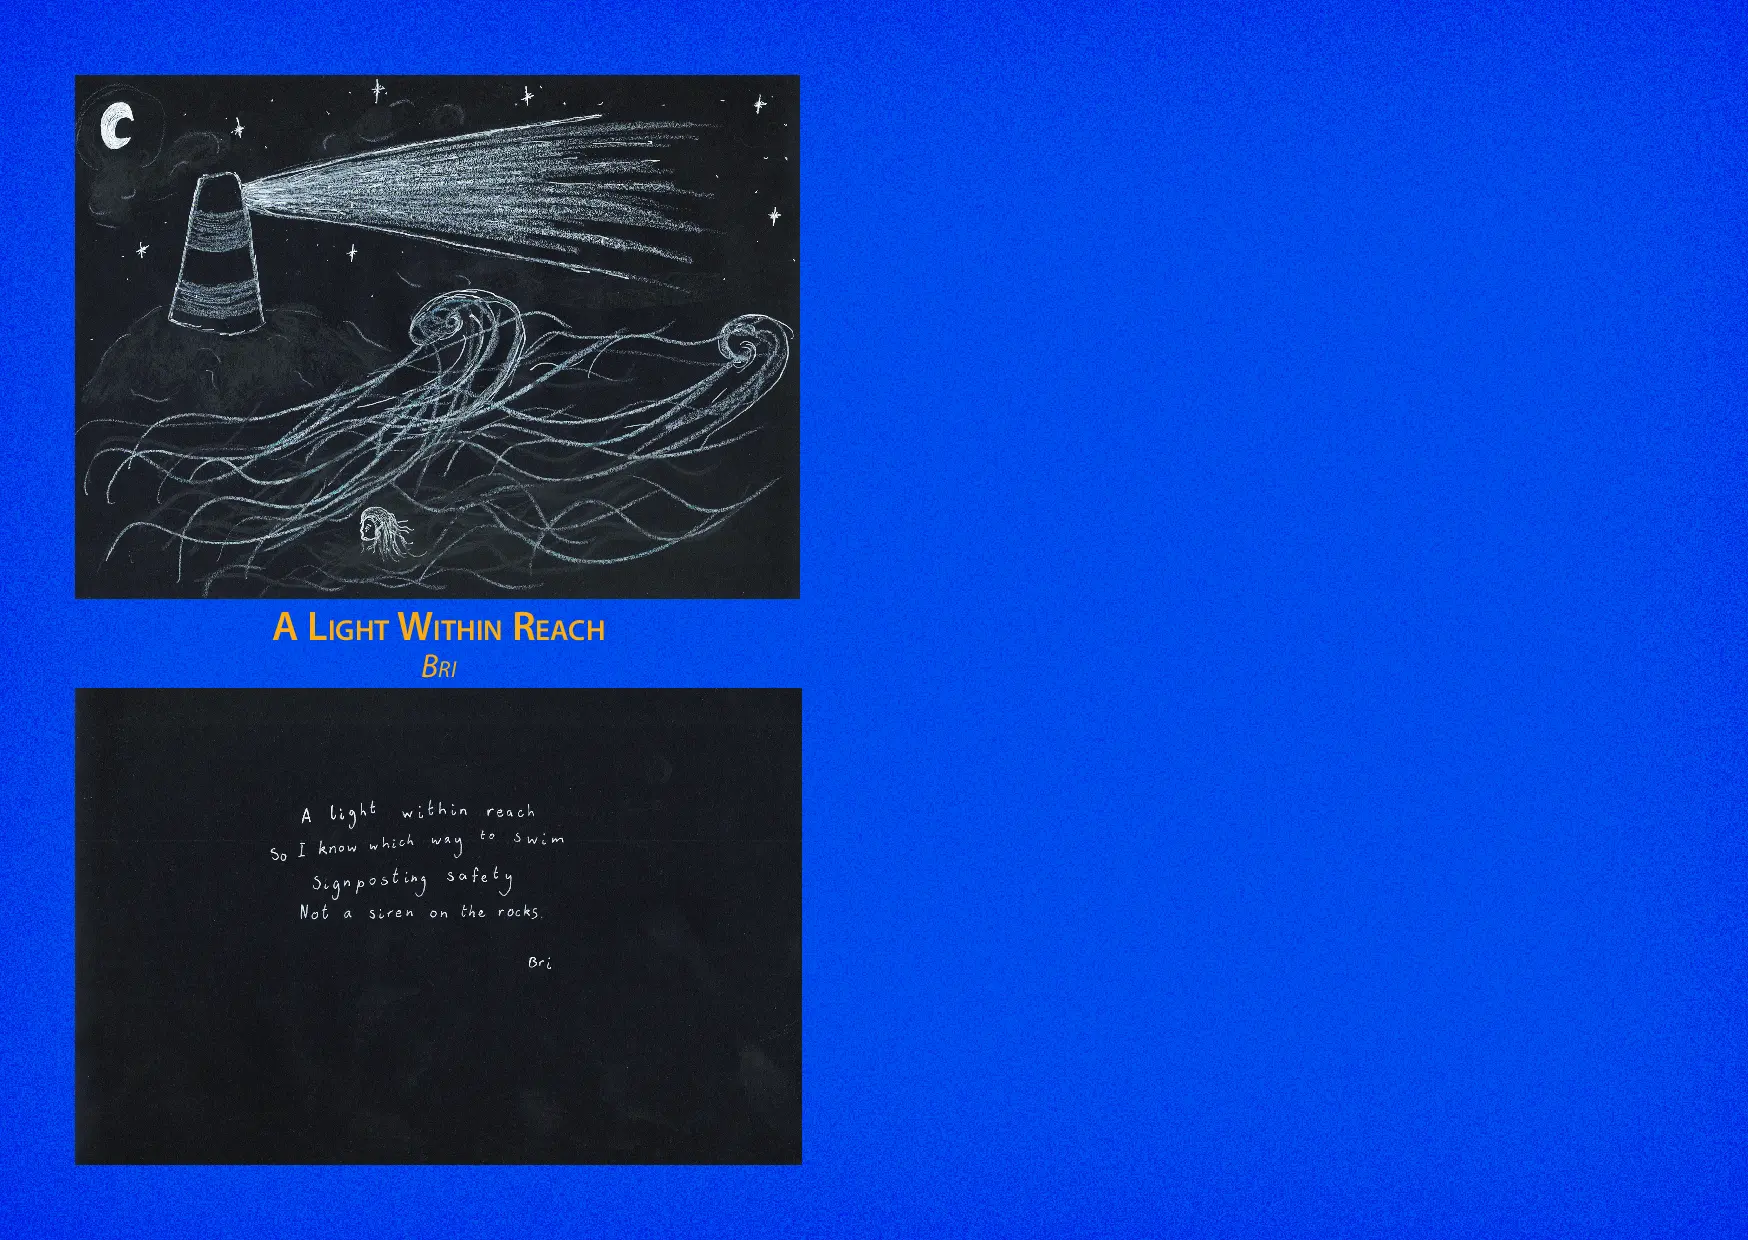 A Light Within Reach
Bri
A light within reach
So I know which way to swim
Signposting safety
Not a siren on the rocks.
Bri